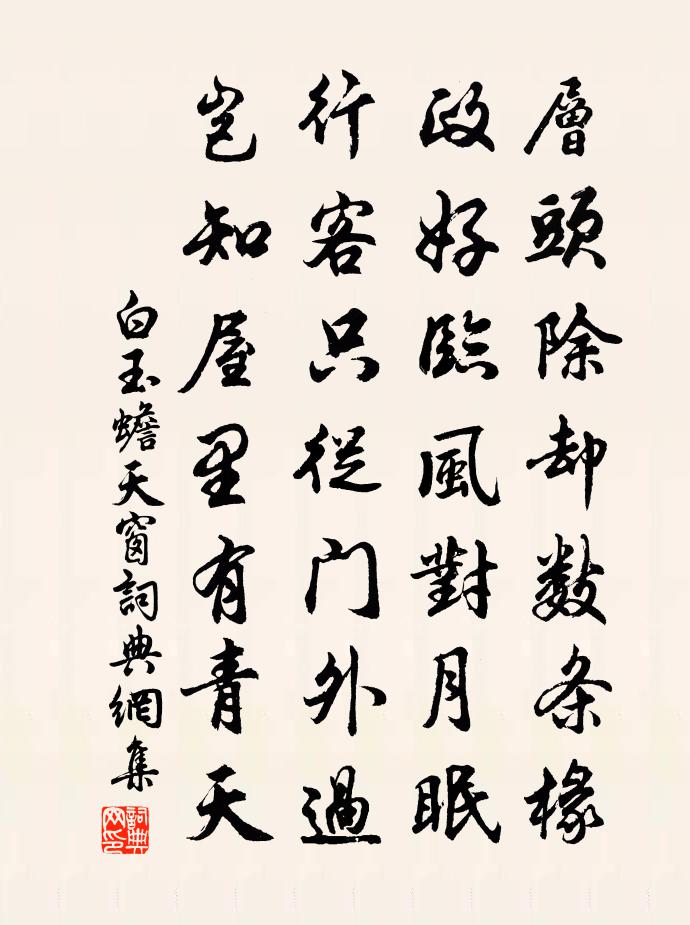 層頭除却数条椽
政好臨風對月眠
行客只從门外過
岂知屋里有青天
白玉蟾天窗詞典網集
詞典网印